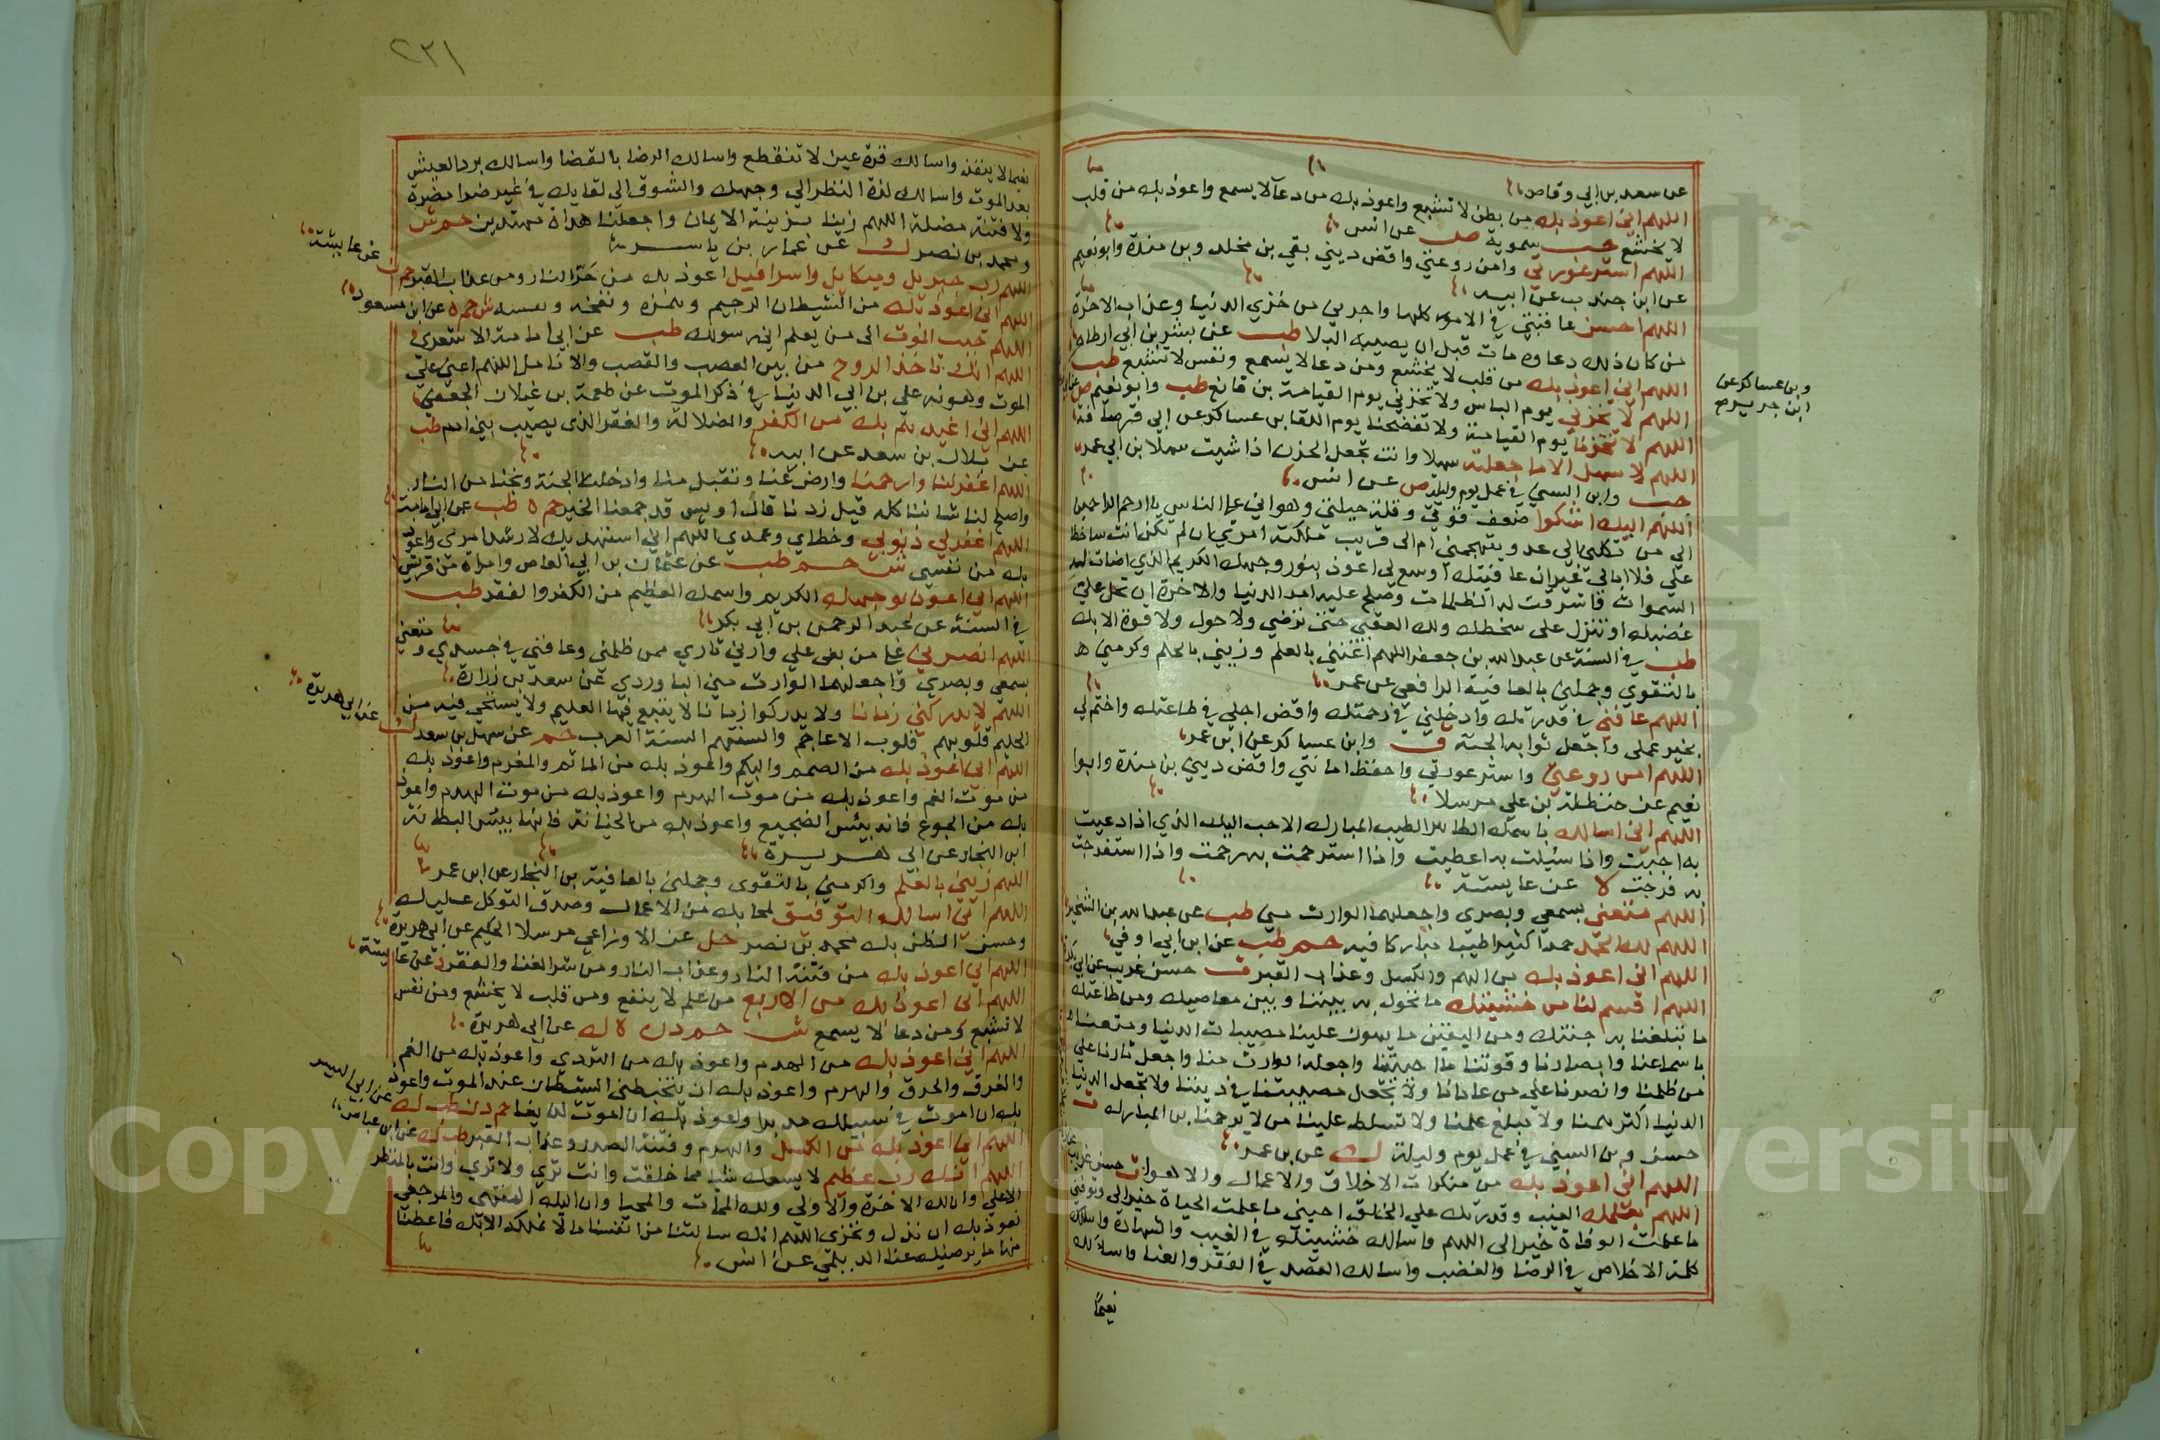 عن سعد بن ابي وقاص
اللهم اني اعوذ بك من بطن لا تشبع واعوذ بك من دعآ لا يسمع واعوذ بك من قلب
لا يخشع حب سموية ص عن انس
اللهم استر عورتي وامن روعتي واقض ديني بقي بن مخلد وبن مندة وابونعيم
عن ابن جندب عن ابيه
اللهم احسن عاقبتي في الامور كلها واجرني من خزي الدنيا وعذاب الاخرة
من كان ذلك دعاوه مات قبل ان يصيبه البلا طب عن بشر بن ابي ارطاه
اللهم اني اعوذ بك من قلب لا يخشع ومن دعا لا يسمع ونفس لا تشبع طب
اللهم لا تخزني يوم الباس ولا تخزني يوم القيامة بن قانع طب وابو نعيم ص
اللهم لا تخزنا يوم القيامة ولا تفضحنا يوم اللقا بن عساكر عن ابي قرصافة
وبن عساكر عن
ابن جرير ص
اللهم لا سهل الا ما جعلته سهلا وانت تجعل الحزن اذا شيت سهلا بن ابي عمر
حب وابن السني في عمل يوم وليلة ص عن انس
اللهم اليك اشكوا ضعف قوتي وقلة حيلتي وهواني علي الناس يا ارحم الراحمين
الي من تكلني الي عدو يتهجمني ام الى قريب ملكته امري ان لم تكن انت ساخطا
علي فلا ابالي غير ان عافيتك اوسع لي اعوذ بنور وجهك الكريم الذي اضات له
السموات واشرقت له الظلمات وصلح عليه امر الدنيا والاخرة ان تحل علي
غضبك او تنزل على سخطك ولك العتبى حتى ترضي ولا حول ولا قوة الا بك
طب في السنة عن عبد الله بن جعفر اللهم اغنني بالعلم وزيني بالحلم وكرمني
بالتقوي وجملني بالعافية الرافعي عن عمر
اللهم عافني في قدرتك وادخلني في رحمتك واقض اجلي في طاعتك واختم لي
بخير عملي واجعل ثوابه الجنة ق وابن عساكر عن ابن عمر
اللهم امن روعتي واستر عورتي واحفظ امانتي واقض ديني بن مندة وابوا
نعيم عن حنظلة بن علي مرسلا
اللهم اني اسالك باسمك الطاهر الطيب المبارك الاحب اليك الذي اذا دعيت
به اجبت واذا سئيلت به اعطيت واذا استرحمت به رحمت واذا استفرجت
به فرجت ه عن عايشة
اللهم متعني بسمعي وبصري واجعلهما الوارث مني طب عن عبد الله بن الشخير
اللهم لك الحمد حمدا كثيرا طيبا مباركا فيه حم طب عن ابن ابي اوفي
اللهم اني اعوذ بك من الهم والكسل وعذاب القبر ت حسن غريب عن ابي بكرة
اللهم اقسم لنا من خشيتك ما تحول به بيننا وبين معاصيك ومن طاعتك
ما تبلغنا به جنتك ومن اليقين ما يهون علينا مصيبات الدنيا ومتعنا
باسماعنا وابصارنا وقوتنا ما احييتنا واجعله الوارث منا واجعل ثارنا علي
من ظلمنا وانصرنا علي من عادانا ولا تجعل مصيبتنا في ديننا ولا تجعل الدنيا
الدنيا اكثر همنا ولا مبلغ علمنا ولا تسلط علينا من لا يرحمنا بن المبارك ت
حسن وبن السني في عمل يوم وليلة ك عن بن عمر
اللهم اني اعوذ بك من منكرات الاخلاق والاعمال والاهواء ت حسن غريب
اللهم بعلمك الغيب وقدرتك علي الخلق احيني ما علمت الحياة خيرا لي وتوفني
ما علمت الوفاة خيرا لي اللهم واسالك خشيتك في الغيب والشهادة واسالك
كلمة الاخلاص في الرضا والغضب واسالك القصد في الفقر والغنا واسالك
نعيمًا
٢٣١
نعيما لا ينفد واسالك قرة عين لا تنقطع واسالك الرضا بالقضا واسالك برد العيش
بعد الموت واسالك لذة النظر الي وجهك والشوق الي لقايك في غير ضرا مضرة
ولا فتنة مضلة اللهم زينا بزينة الايمان واجعلنا هداة مهتدين حم ش
ومحمد بن نصر ك عن عمار بن ياسر
اللهم رب جبريل وميكايل واسرافيل اعوذ بك من حر النار ومن عذاب القبر حم ن
عن عايشة
اللهم اني اعوذ بك من الشيطان الرجيم وهمزه ونفخه ونفسه ش حم ه عن ابن مسعود
اللهم حبب الموت الى من يعلم اني رسولك طب عن ابي مالك الاشعري
اللهم انك تاخذ الروح من بين العصب والقصب والانامل اللهم اعني علي
الموت وهونه علي بن ابي الدنيا في ذكر الموت عن طعمة بن غيلان الجعفي
اللهم اني اعوذ بك من الكفر والضلالة والفقر الذي يصيب بني ادم طب
عن بلال بن سعد عن ابيه
اللهم اغفر لنا وارحمنا وارض عنا وتقبل منا وادخلنا الجنة ونجنا من النار
واصلح لنا شاننا كله قيل زدنا قال اوليس قد جمعنا الخير حم ه طب عن ابي امامة
اللهم اغفر لي ذنوبي وخطاي وعمدي اللهم اني استهديك لارشد امري واعوذ
بك من نفسي ش حم طب عن عثمان بن ابي العاص وامراة من قريش
اللهم اني اعوذ بوجهك الكريم واسمك العظيم من الكفر والفقر طب
في السنة عن عبد الرحمن بن ابي بكر
اللهم انصرني علي من بغى علي وارني ثاري ممن ظلمني وعافني في جسدي ومتعني
بسمعي وبصري واجعلهما الوارث مني الباوردي عن سعد بن زرارة
اللهم لا يدركني زمانا ولا يدركوا زمانا لا يتبع فيه العليم ولا يستحي فيه من
الحليم قلوبهم قلوب الاعاجم والسنتهم السنة العرب حم عن سهل بن سعد ك
عن ابي هريرة
اللهم اني اعوذ بك من الصمم والبكم واعوذ بك من الماثم والمغرم واعوذ بك
من موت الغم واعوذ بك من موت الهدم واعوذ بك من موت الهرم واعوذ
بك من الجوع فانه بيئس الضجيع واعوذ بك من الخيانة فانها بيئس البطانة
ابن النجار عن ابي هريرة
اللهم زيني بالعلم واكرمني بالتقوى وجملني بالعافية بن النجار عن ابن عمر
اللهم اني اسالك التوفيق لمحابك من الاعمال وصدق التوكل عليك
وحسن الظن بك محمد بن نصر حل عن الاوزاعي مرسلا الحكيم عن ابي هريرة
اللهم اني اعوذ بك من فتنة النار وعذاب النار ومن شر الغنا والفقر د عن عايشة
اللهم اني اعوذ بك من الاربع من علم لا ينفع ومن قلب لا يخشع ومن نفس
لا تشبع ومن دعا لا يسمع ش حم د ن ه ك عن ابي هريرة
اللهم اني اعوذ بك من الهدم واعوذ بك من التردي واعوذ بك من الغم
والغرق والحرق والهرم واعوذ بك ان يتخبطني الشيطان عند الموت واعوذ
بك ان اموت في سبيلك مدبرا واعوذ بك ان اموت لديغا حم د ن طب ك
عن ابي اليسر
اللهم اني اعوذ بك من الكسل والهرم وفتنة الصدر وعذاب القبر طب ك عن ابن عباس
اللهم انك رب عظيم لا يسعك شيا مما خلقت وانت تري ولا تري وانت بالمنظر
الاعلي وان لك الاخرة والاولي ولك الممات والمحيا وان اليك المنتهى والمرجعى
نعوذ بك ان نذل ونخزي اللهم انك سالتنا من انفسنا ما لا نملكه الا بك فاعطنا
منها ما يرضيك عنا الديلمي عن انس
Copyright © King Saud University